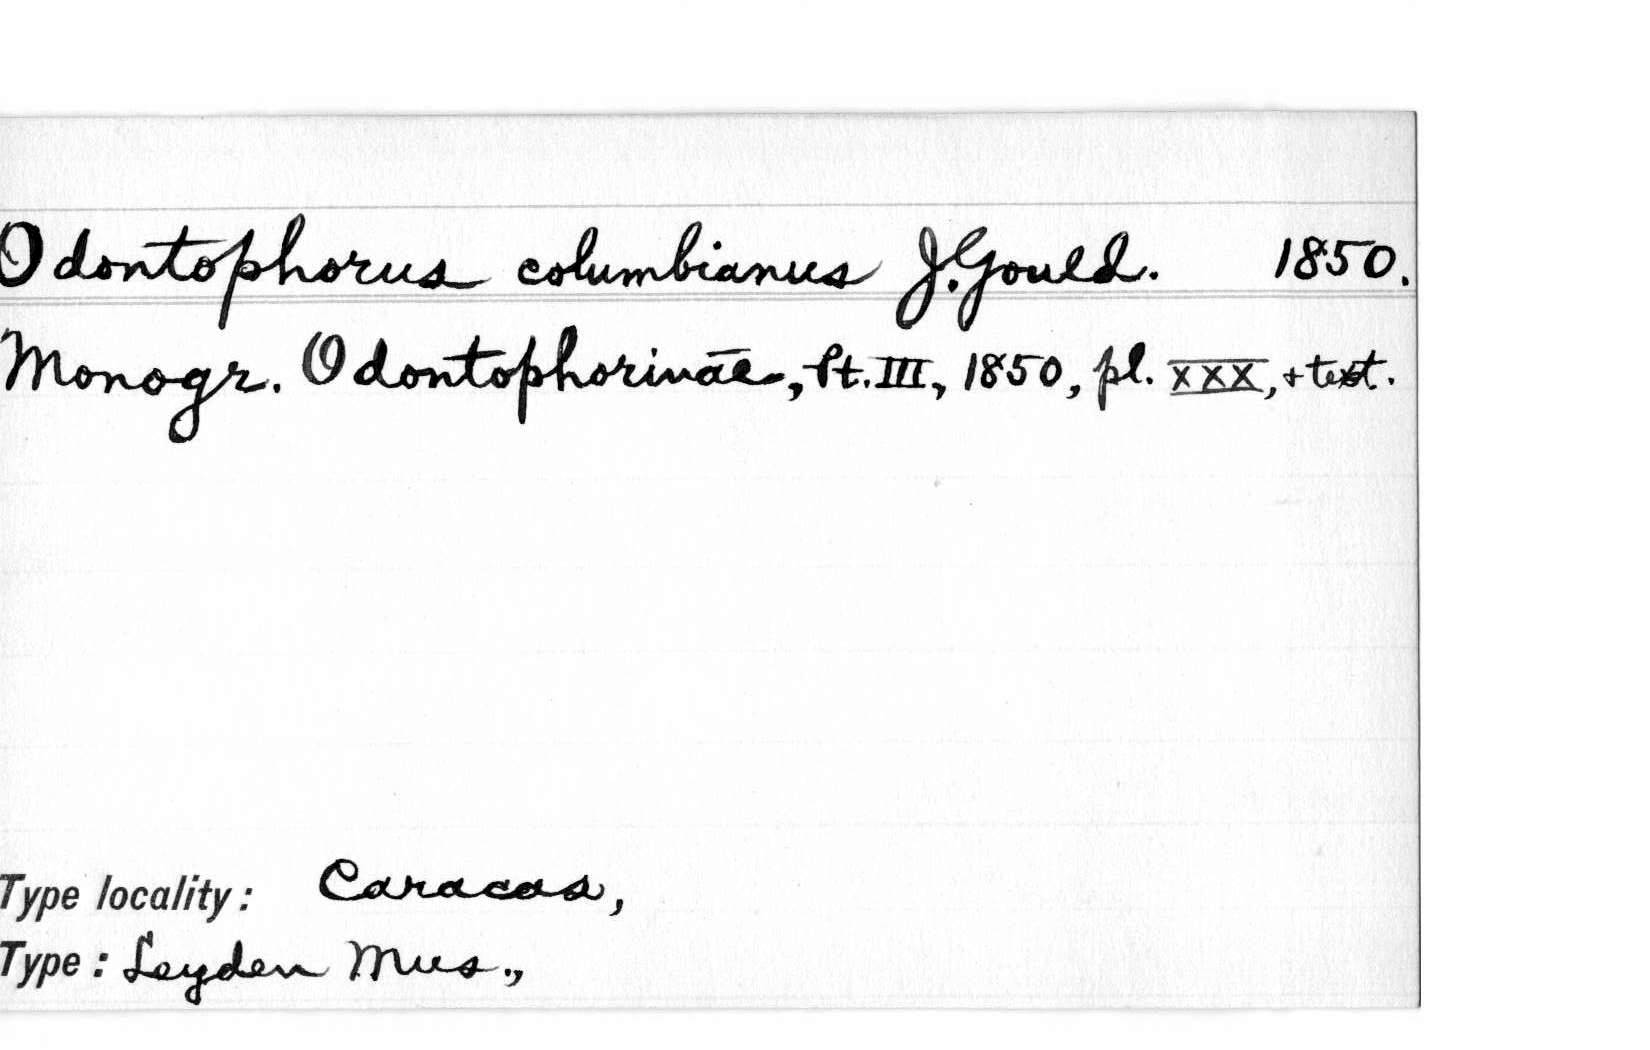 Odontophorus columbianus J. Gould. 1850.
Monogr. Odontophorinae, Pt. III, 1850, pl. XXX, + text.
Type locality: Caracas,
Type: Leyden Mus.,